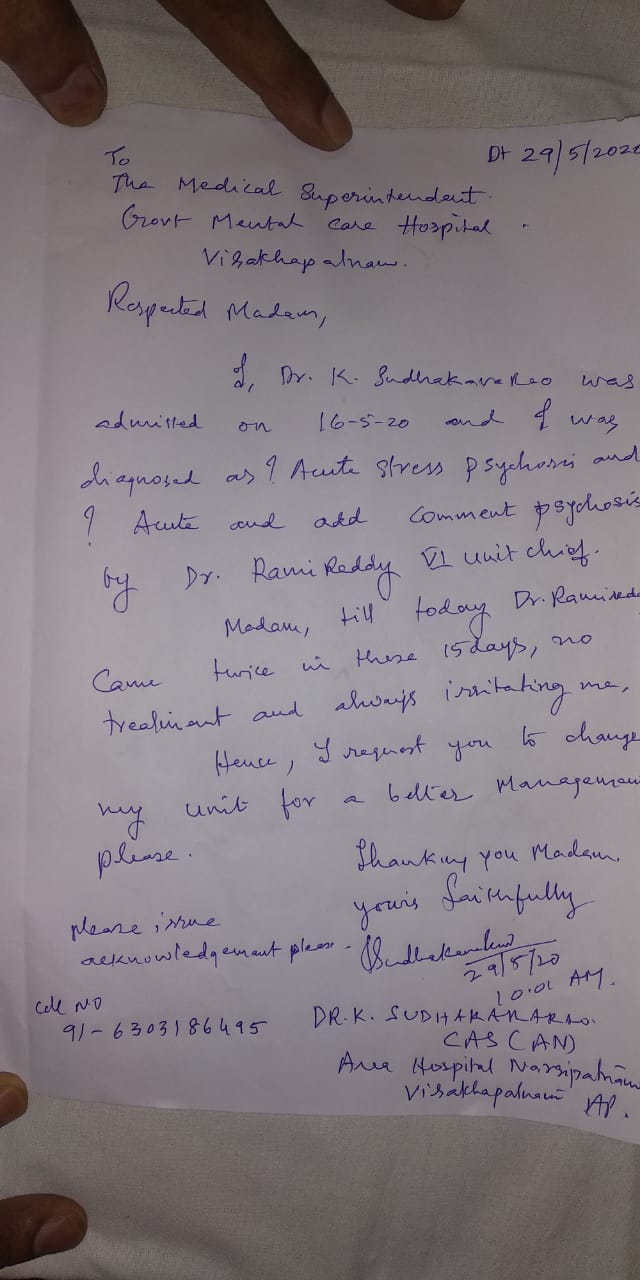 Dt 29/5/202
To
The Medical Superintendent.
Govt Mental Care Hospital.
Visakhapatnam.
Respected Madam,
I, Dr. K. Sudhakara Rao was
admitted on 16-5-20 and I was
diagnosed as ? Acute stress psychosis and
? Acute and add comment psychosis
by Dr. Rami Reddy VI unit chief.
Madam, till today Dr. Ramiredd
Came twice in these 15 days, no
treatment and always irritating me,
Hence, I request you to change
my unit for a better Managemen
please.
Thanking you Madam,
yours faithfully
please issue
acknowledgement please.
29/5/20
10.01 AM.
Cell NO
91-6303186495
DR. K. SUDHAKARARAO.
CAS (AN)
Area Hospital Narsipatnam
Visakhapatnam AP.